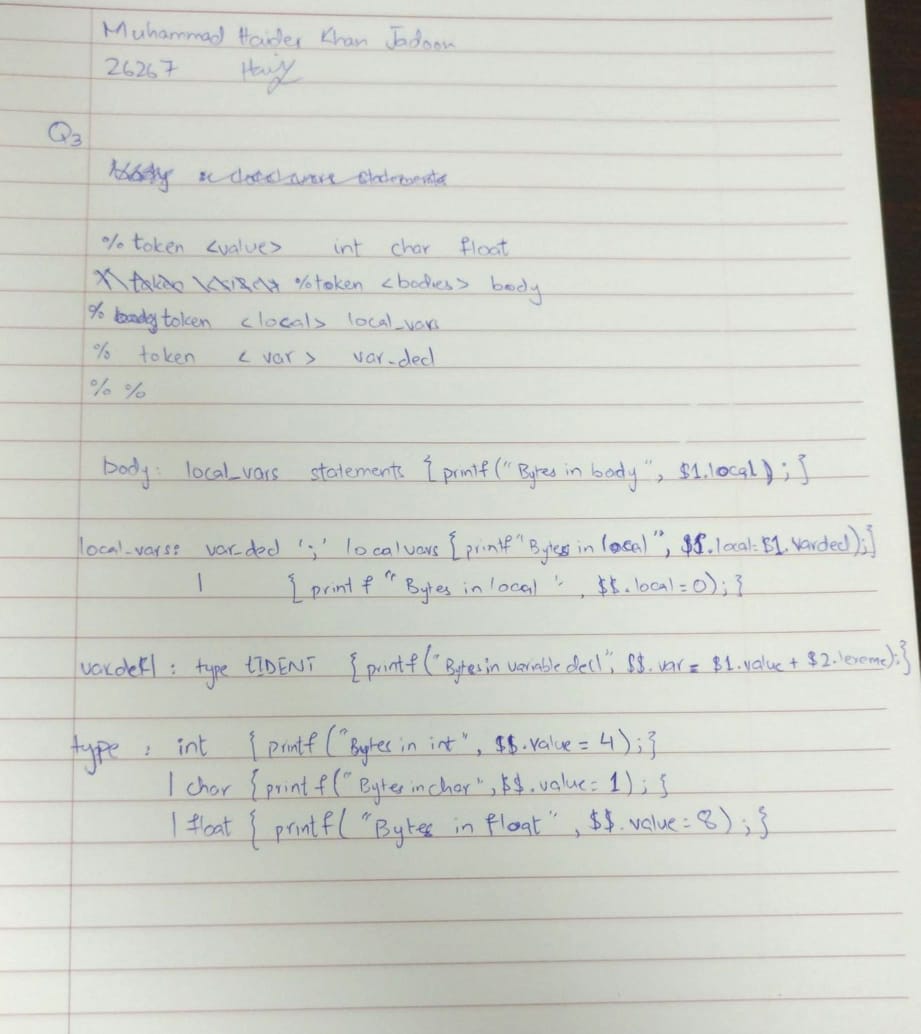 Muhammad Haider Khan Jadoon
26267
Q3
% token <value> int char float
%token <bodies> body
% token <local> local_vars
% token < var > var_decl
% %
body: local_vars statements { printf("Bytes in body", $1.local); }
local_vars: var_decl ';' localvars { printf "Bytes in local", $$.local=$1.vardecl); }
| { printf "Bytes in local", $$.local=0); }
: type tIDENT { printf("Bytes in variable decl", $$.var = $1.value + $2.lexeme); }
type : int { printf("Bytes in int", $$.value = 4); }
| char { printf("Bytes in char", $$.value= 1); }
| float { printf( "Bytes in float", $$.value=8); }